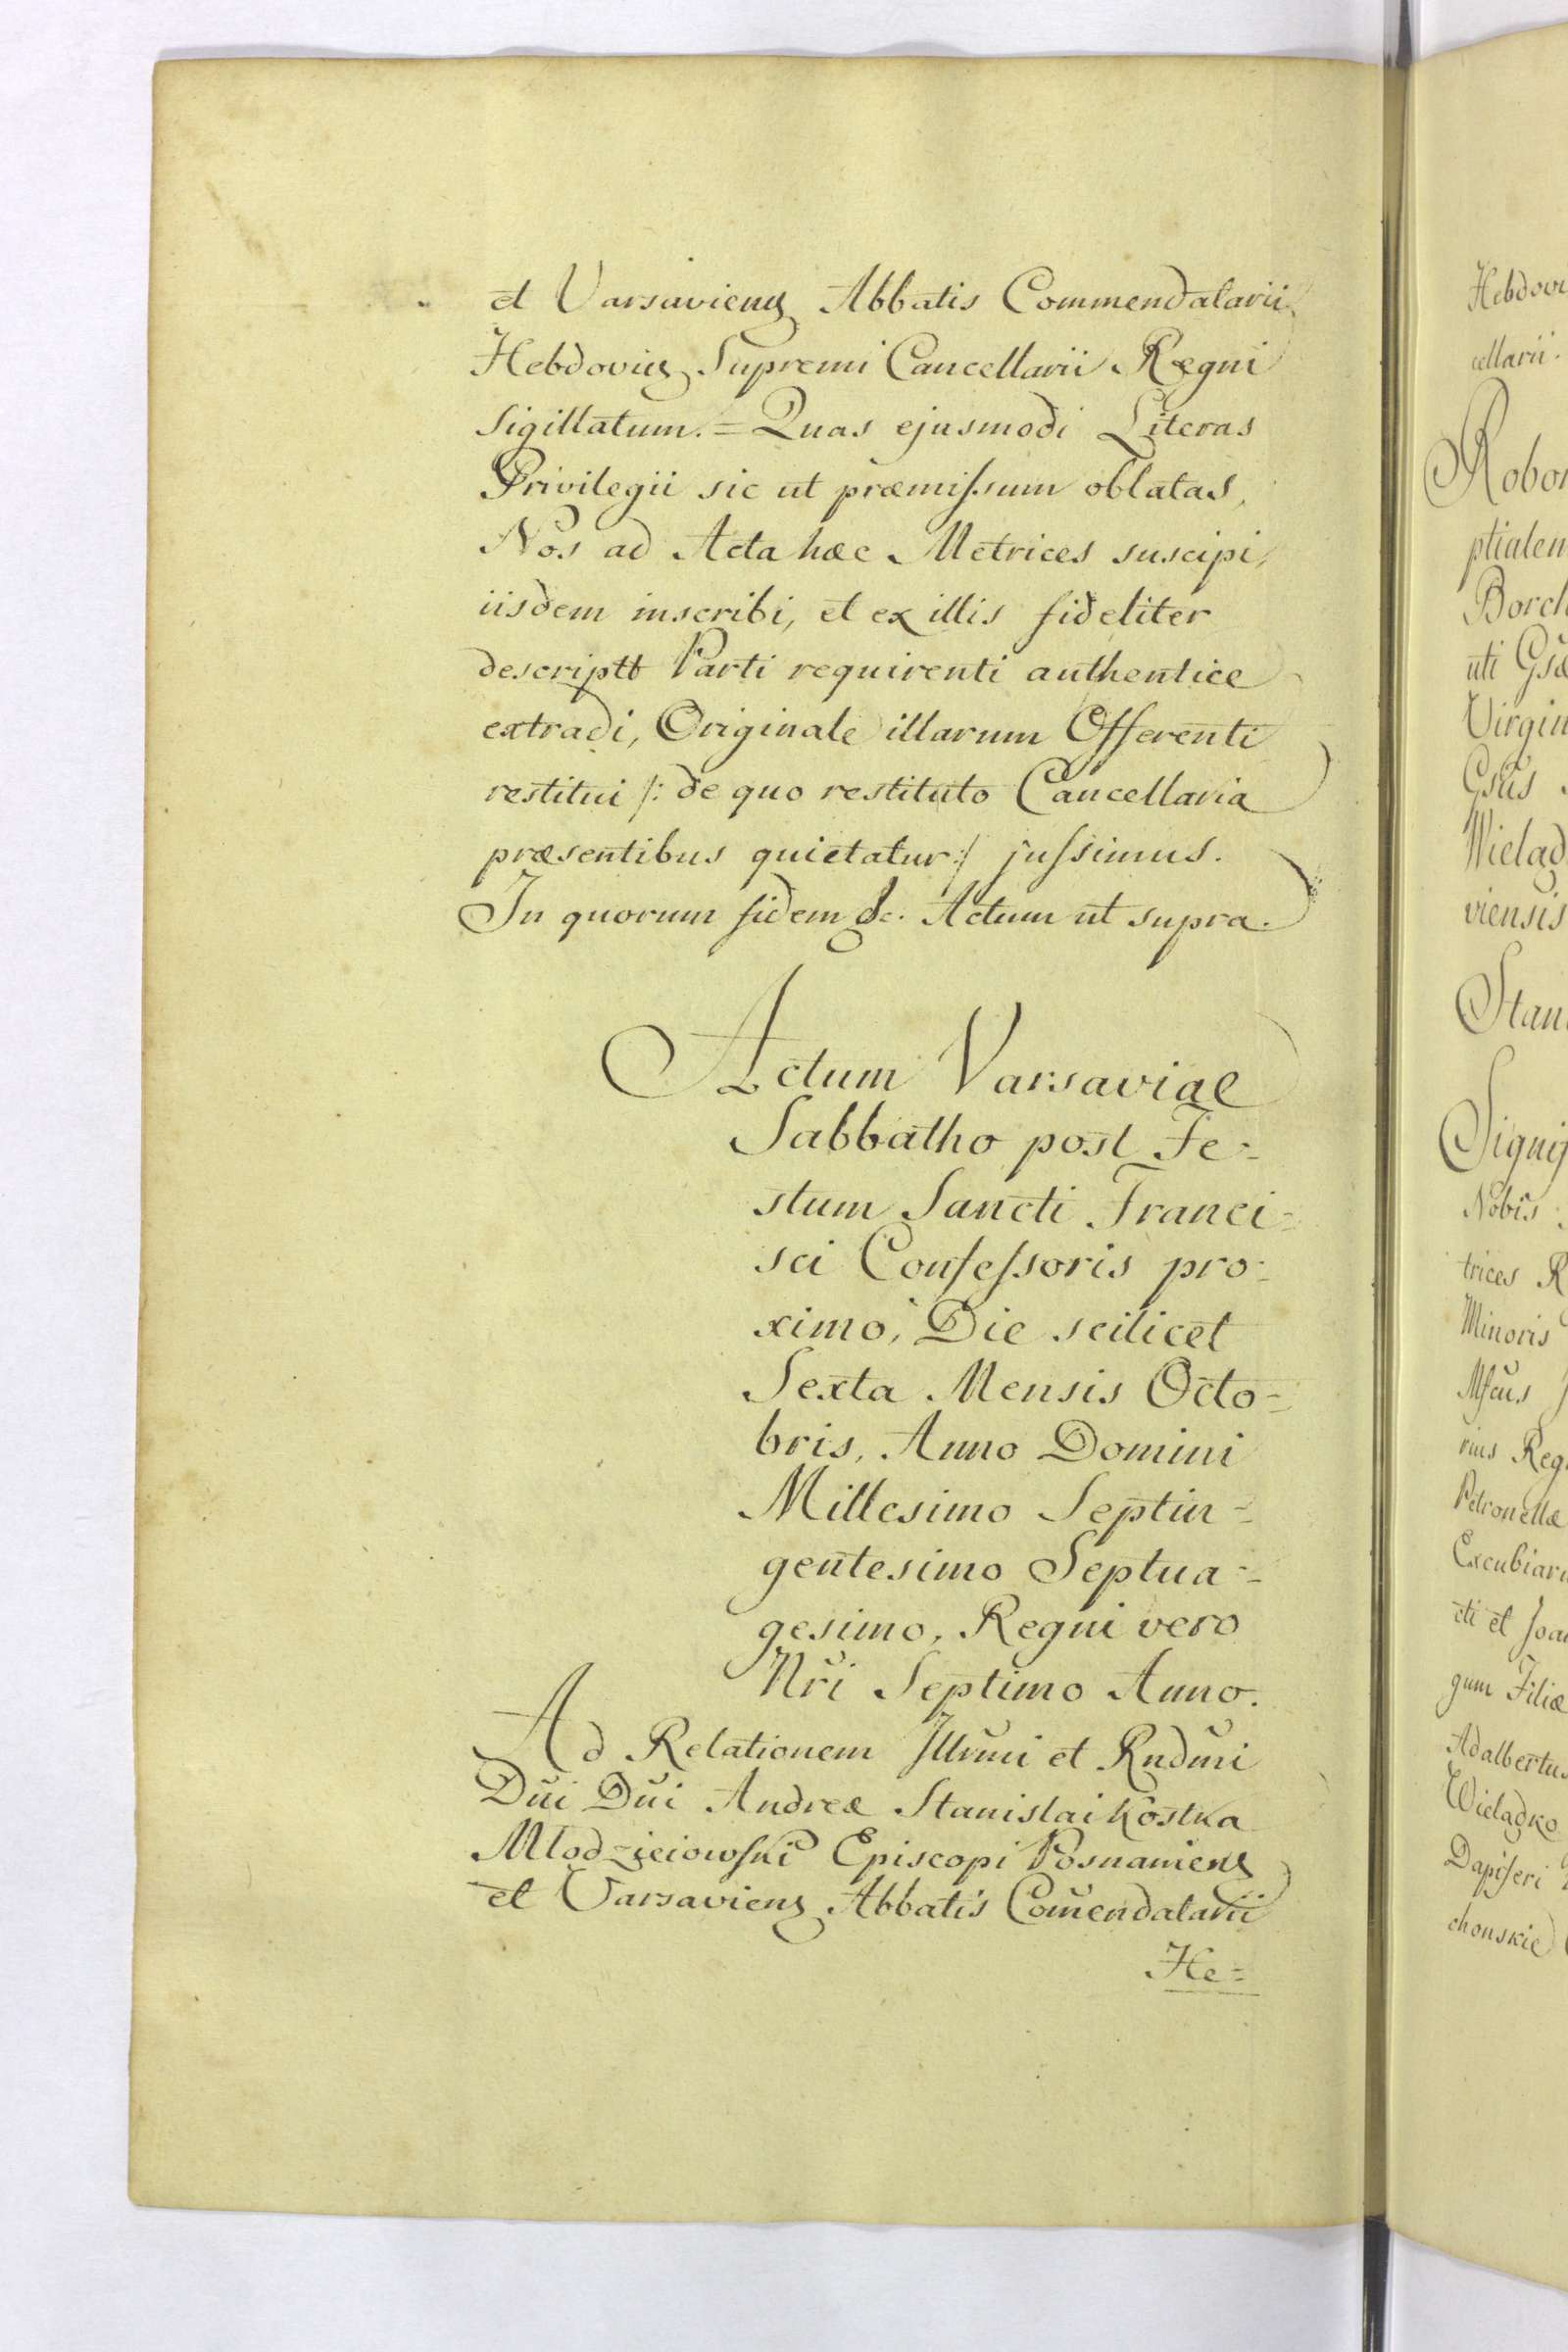 et Varsaviens Abbatis Commendatarii
Hebdovies Supremi Cancellarii Regni
Sigillatum. = Quas ejusmodi Literas
Privilegii sic ut præmissum oblatas,
Nos ad Acta hæc Metrices suscipi,
iisdem inscribi, et ex illis fideliter
descriptt Parti requirenti authentice
extradi, Originale illarum Offerenti
restitui /: de quo restituto Cancellaria
præsentibus quietatur :/ jussimus.
In quorum fidem &c. Actum ut supra.
Actum Varsaviae
Sabbatho post Fe=
stum Sancti Franci=
sci Confessoris pro=
ximo, Die scilicet
Sexta Mensis Octo=
bris, Anno Domini
Millesimo Septin=
gentesimo Septua=
gesimo, Regni vero
Nri Septimo Anno.
Ad Relationem Illrmi et Rndmi
Dni Dni Andreæ Stanislai Kostka
Mlodzieiowski Episcopi Posnaniens
et Varsaviens Abbatis Comendatarii
He=
cellarii.
Robor
ptialem
Borch
uti Gsæ
Virgin
Gsus
Wielad
viensis
Stan
Signif
Nobis
trices R
Minoris
Mfcus J
rius Reg
Petronellæ
Excubiaru
cti et Joa
gum Filiæ
Adalbertus
Wieladko
Dapiferi
chonskie